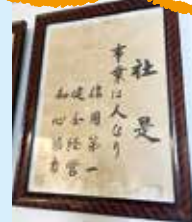 社是
事業は人なり
信用第一
健全経営
和心協力